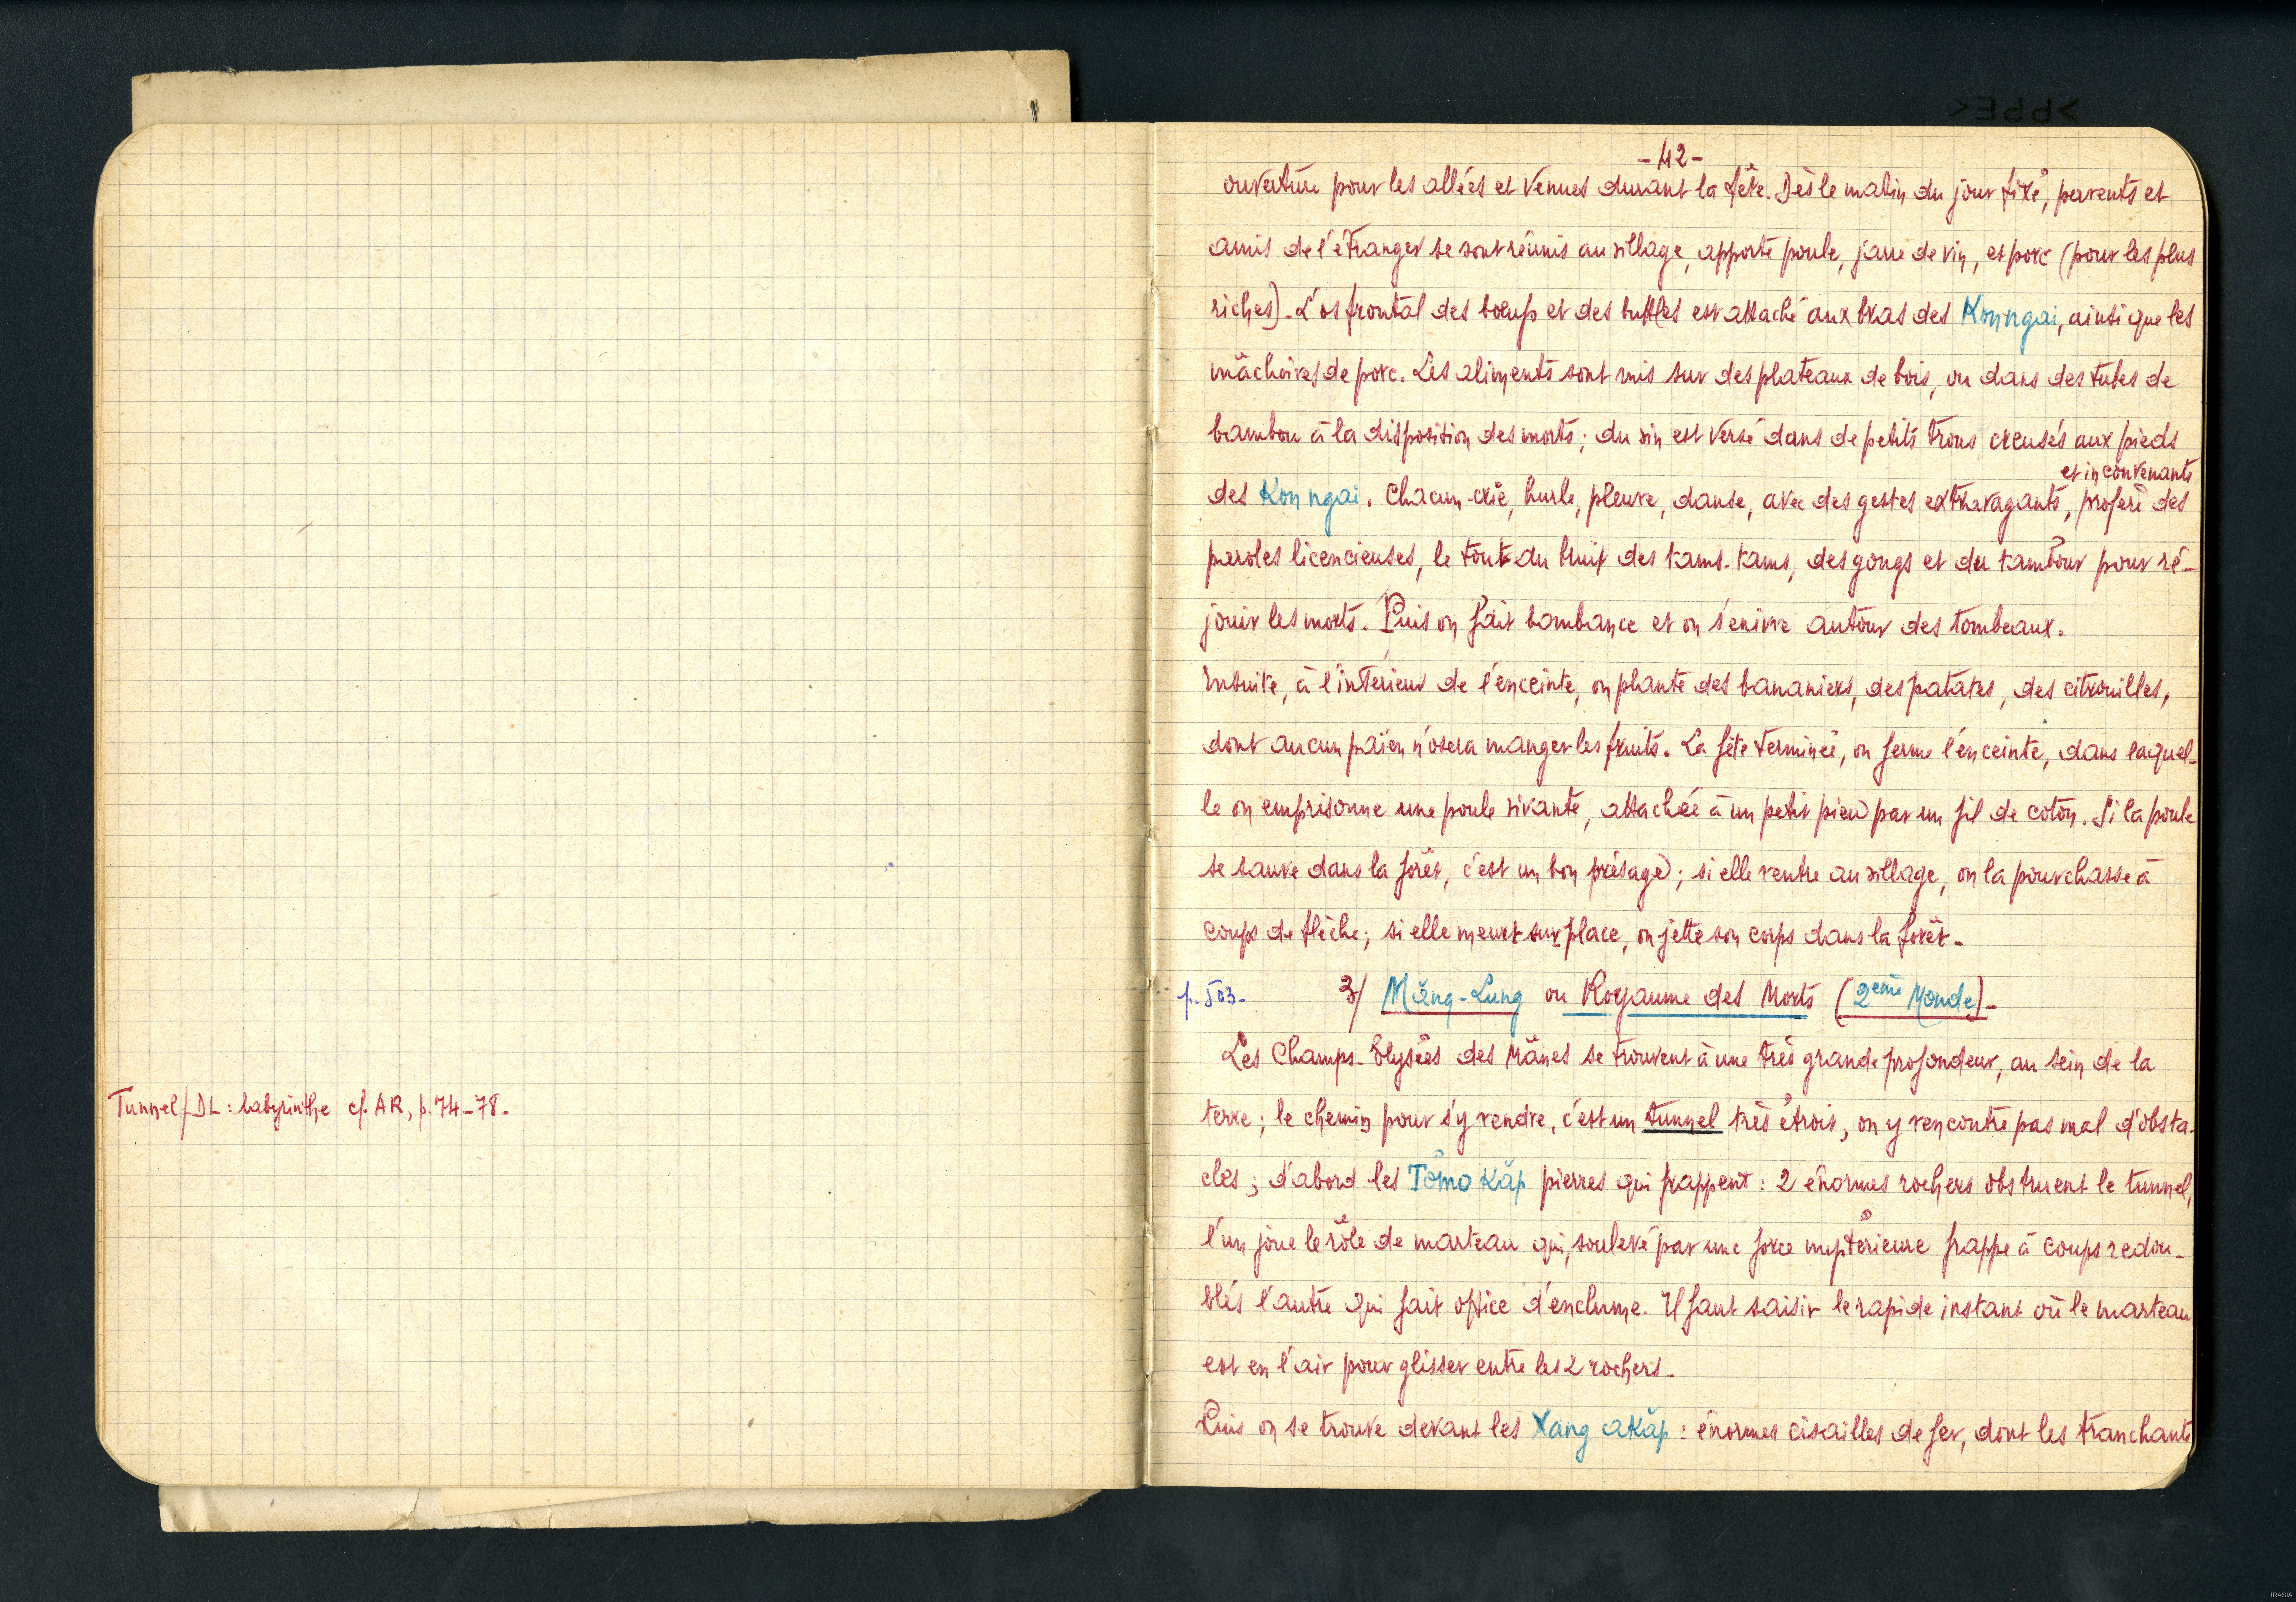 Tunnel/DL : labyrinthe cf. AR, p. 74-78.
- 42 -
ouverture pour les allées et venues durant la fête. Dès le matin du jour fixé, parents et
amis de l'étranger se sont réunis au village, apporté poule, jarre de vin, et porc (pour les plus
riches). L'os frontal des boeufs et des buffles est attaché aux bras des Konngai, ainsi que les
mâchoires de porc. Les aliments sont mis sur des plateaux de bois, ou dans des tubes de
bambou à la disposition des morts ; du vin est versé dans de petits trous creusés aux pieds
et inconvenants
des Konngai. Chacun crie, hurle, pleure, danse, avec des gestes extravagants, profère des
paroles licencieuses, le tout au bruit des tams-tams, des gongs et du tambour pour ré-
jouir les morts. Puis on fait bombance et on s'enivre autour des tombeaux.
Ensuite, à l'intérieur de l'enceinte, on plante des bananiers, des patates, des citrouilles,
dont aucun païen n'osera manger les fruits. La fête terminée, on ferme l'enceinte, dans laquel-
le on emprisonne une poule vivante, attachée à un petit pieu par un fil de coton. Si la poule
se sauve dans la forêt, c'est un bon présage ; si elle rentre au village, on la pourchasse à
coups de flèche ; si elle meurt sur place, on jette son corps dans la forêt.
p. 503- 3/ Măng-Lung ou Royaume des Morts (2ème Monde).
Les Champs-Elysées des Mânes se trouvent à une très grande profondeur, au sein de la
terre ; le chemin pour s'y rendre, c'est un tunnel très étroit, on y rencontre pas mal d'obsta-
cles ; d'abord les Tŏmo Kăp pierres qui frappent : 2 énormes rochers obstruent le tunnel,
l'un joue le rôle de marteau qui, soulevé par une force mystérieuse frappe à coups redou-
blés l'autre qui fait office d'enclume. Il faut saisir le rapide instant où le marteau
est en l'air pour glisser entre les 2 rochers.
Puis on se trouve devant les Xang aKăp : énormes cisailles de fer, dont les tranchants
IRASIA